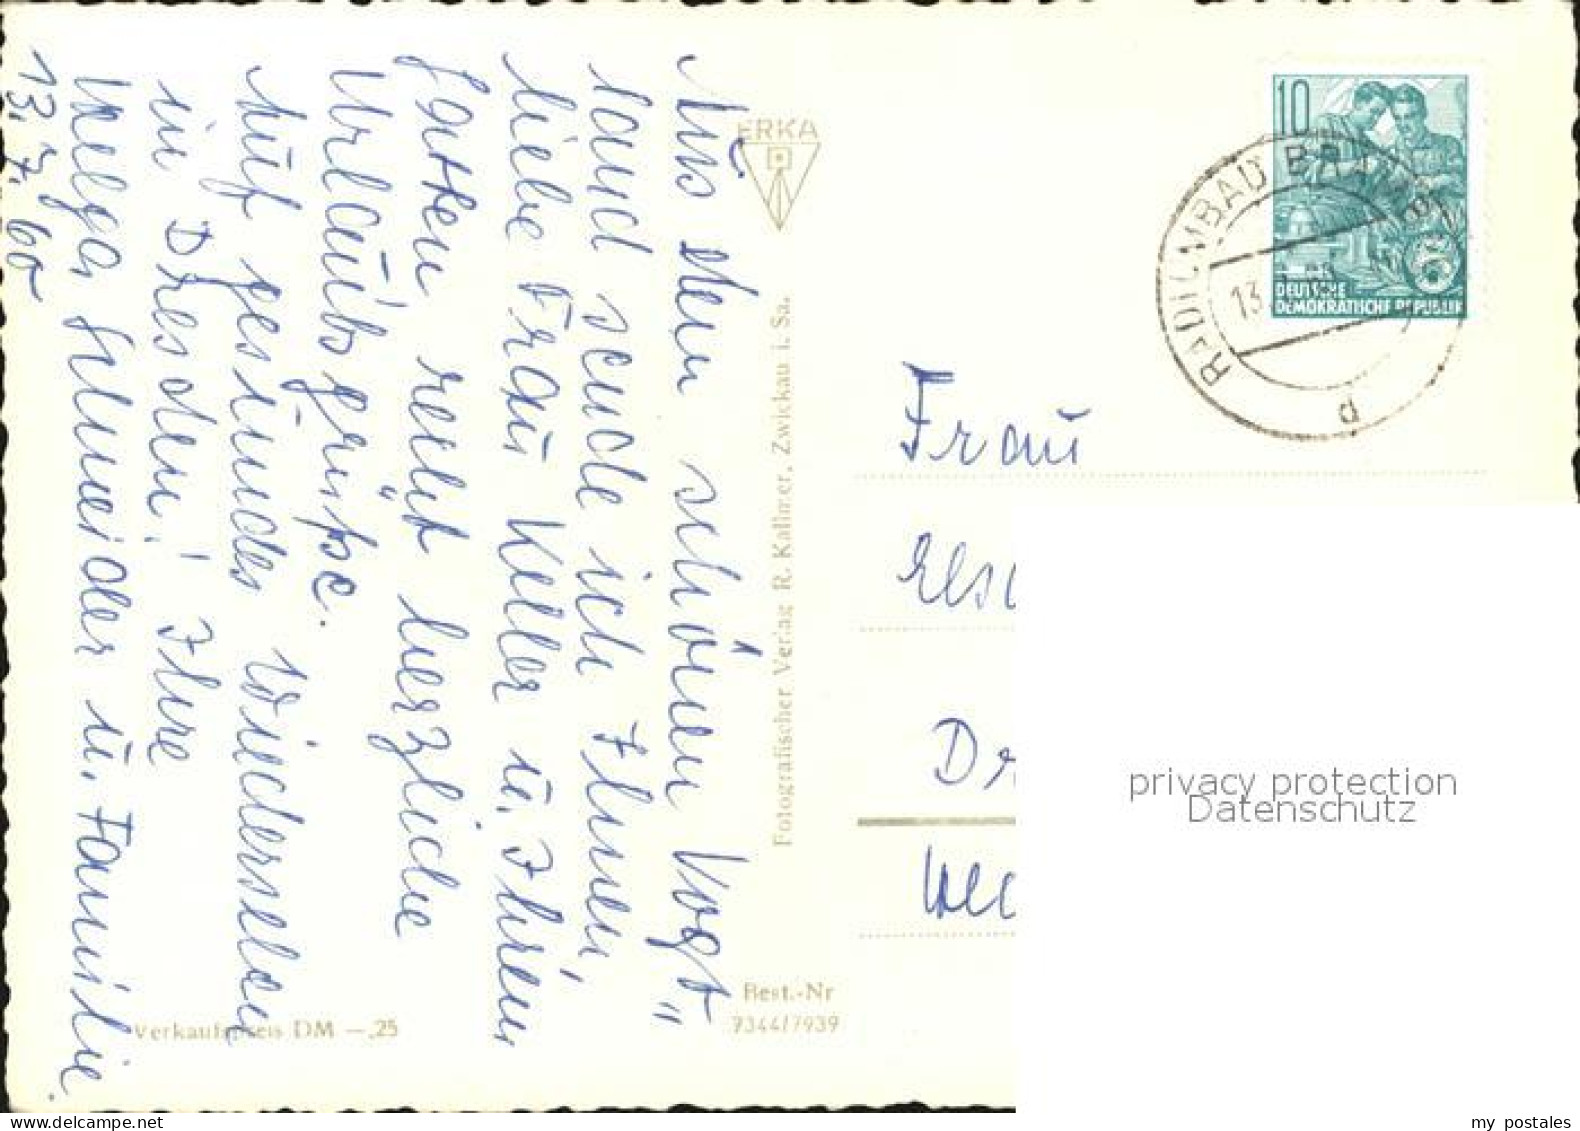 Aus dem schönen Vogt„
land sende ich Ihnen,
liebe Frau Keller u. Ihrem
Gatten recht herzliche
Urlaubsgrüße.
Auf gesundes Wiedersehen
in Dresden! Ihre
Helga Schneider u. Familie.
13.7.60
ERKA
Fotografischer Verlag R. Kallmer, Zwickau i. Sa.
Best.-Nr
7344/7939
Verkaufspreis DM —,25
10
DEUTSCHE
DEMOKRATISCHE REPUBLIK
RADIUMBAD BRAMB
13.
d
Frau
Dr
privacy protection
Datenschutz
www.delcampe.net
my_postales